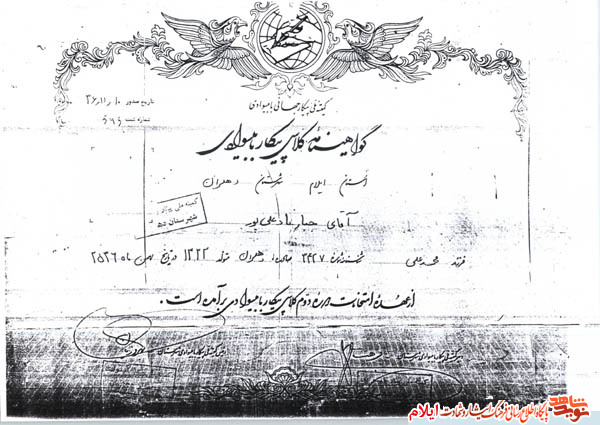 کمیته ملی پیکار جهانی با بیسوادی
تاریخ صدور
شماره ثبت
گواهینامه کلاس پیکار با بیسوادی
استان ایلام شهرستان دهلران
کمیته ملی پیکار
شهرستان
آقای جبار یادعلی پور
فرزند محمدعلی شماره شناسنامه ۳۴۲۷ صادره از دهلران متولد ۱۳۲۲ در تاریخ بهمن ماه ۲۵۳۶
از عهده امتحانات دوره دوم کلاس پیکار با بیسوادی برآمده است.
نوید شاهد
پایگاه اطلاع رسانی فرهنگ ایثار و شهادت ایلام